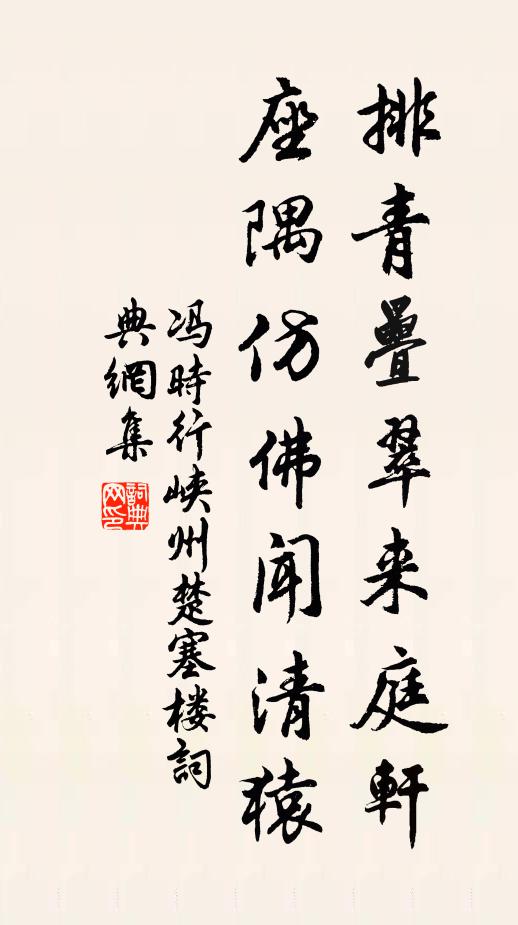 排青疊翠来庭軒
座隅仿佛聞清猿
冯時行峡州楚塞楼詞
典網集
詞典网印